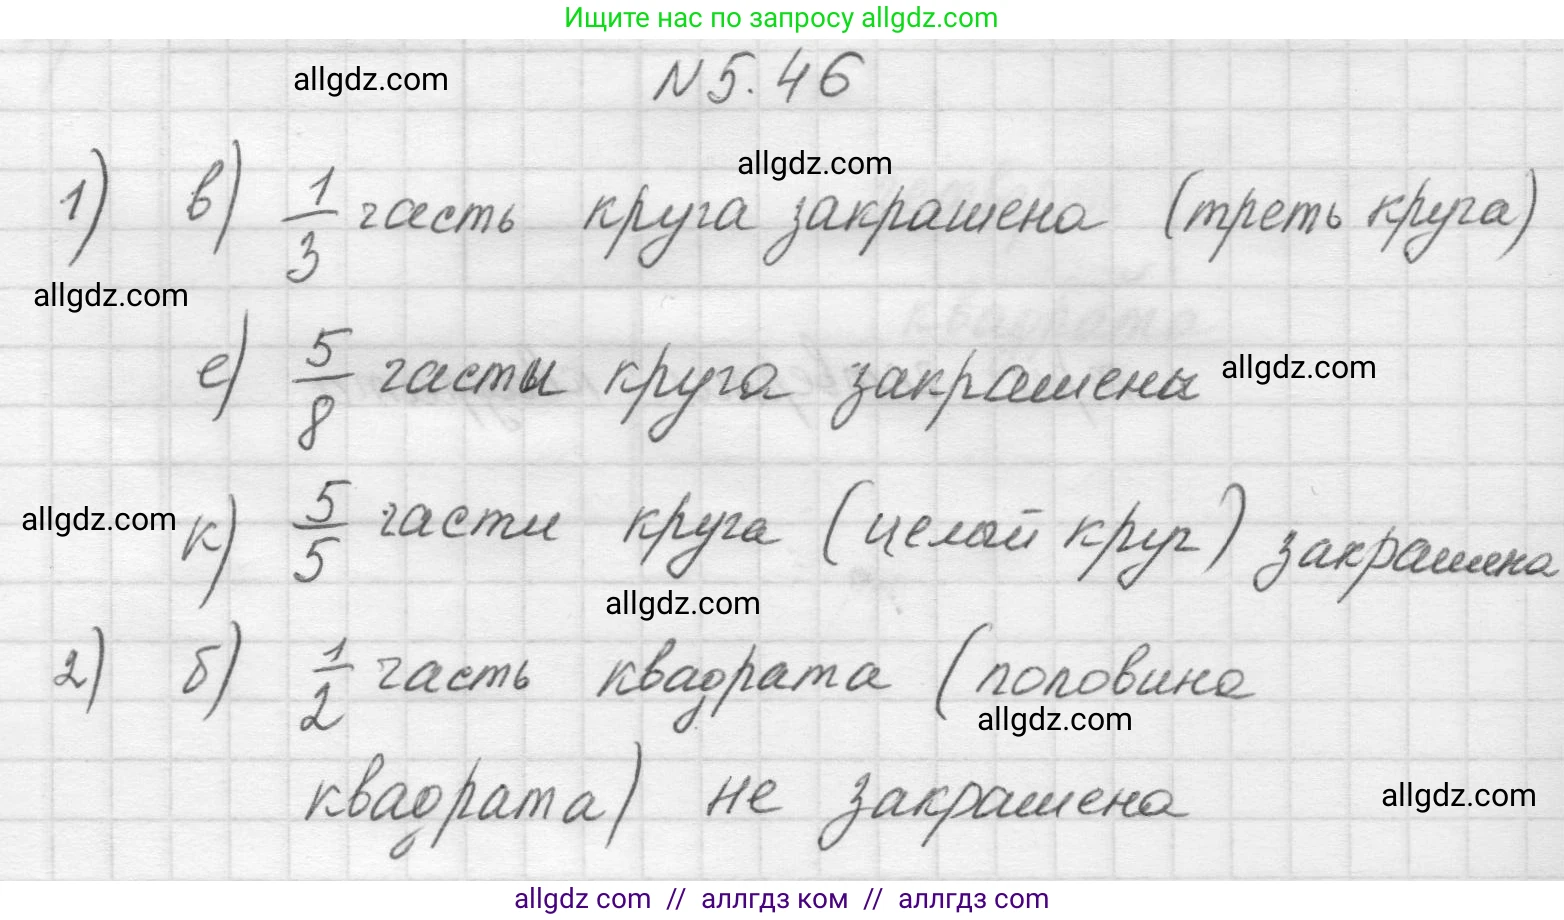 Ищите нас по запросу allgdz.com
allgdz.com
N 5.46
allgdz.com
1) в) 1/3 часть круга закрашена (треть круга)
allgdz.com
е) 5/8 часты круга закрашены
allgdz.com
allgdz.com
к) 5/5 части круга (целый круг) закрашена
allgdz.com
2) б) 1/2 часть квадрата (половина
allgdz.com
квадрата) не закрашена
allgdz.com
allgdz com // аллгдз ком // аллгдз com